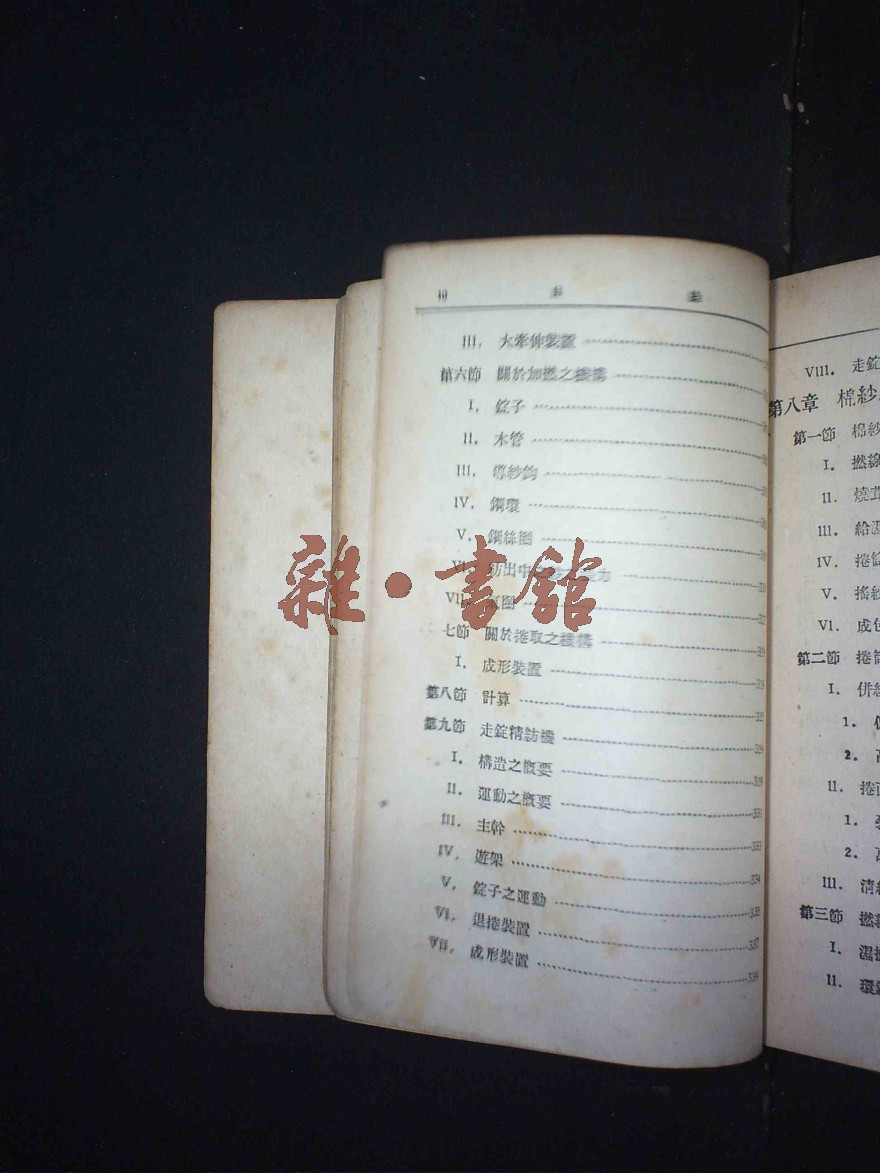 10 目 錄
III. 大牽伸裝置
第六節 關於加撚之機構
I. 錠子
II. 木管
III. 導紗鈎
IV. 鋼環
V. 鋼絲圈
紡出中
VII
七節 關於捲取之機構
I. 成形裝置
第八節 計算
第九節 走錠精紡機
I. 構造之概要
II. 運動之概要
III. 主幹 333
IV. 遊架 334
V. 錠子之運動
VI. 退捲裝置 337
VII. 成形裝置
雜·書館
VIII. 走錠
第八章 棉紗
第一節 棉紗
I. 撚線
II. 燒茸
III. 給濕
IV. 捲筒
V. 搖紗
VI. 成包
第二節 捲筒
I. 併
1.
2.
II. 捲
1.
2.
III. 清
第三節 撚
I. 濕
II. 環